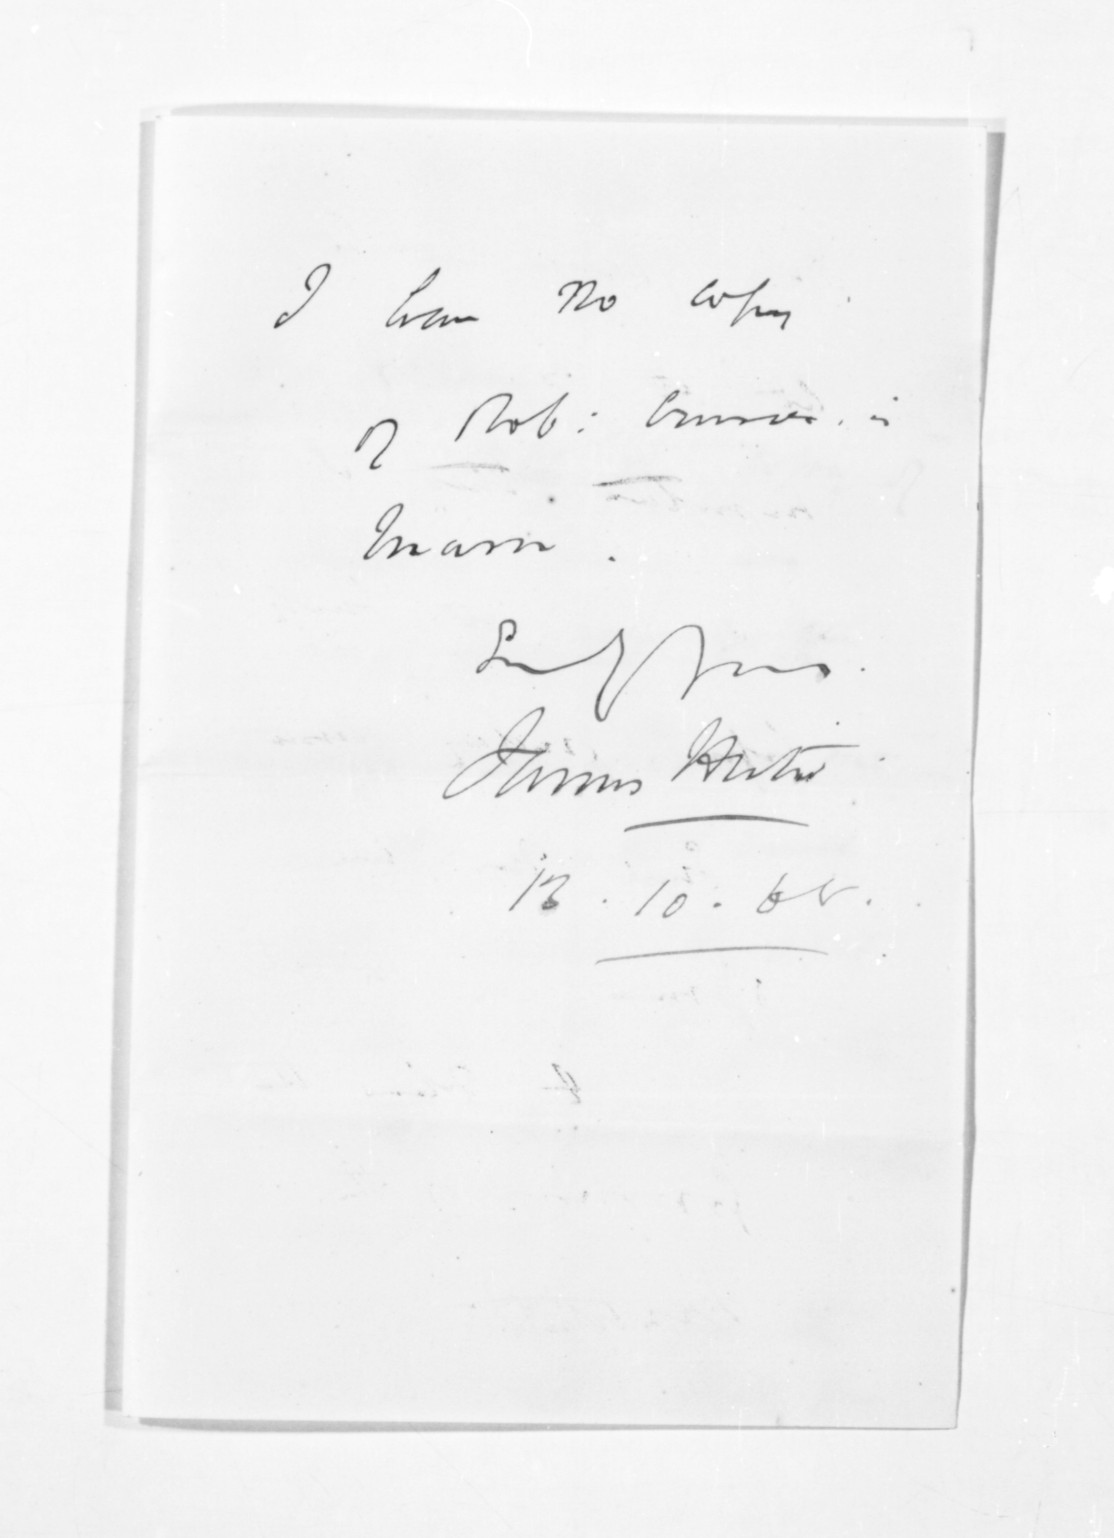 I have no copy
of Rob: Crusoe. in
Maori.
Truly Yours.
James
13. 10. 65.